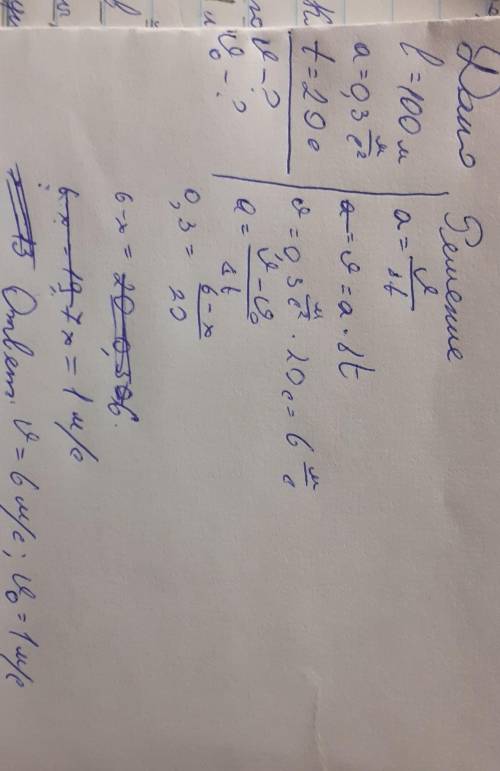 Дано
l = 100 м
a = 0,3 м/с²
t = 20 с
v - ?
v₀ - ?
Решение
a = v/Δt
a = v = a · Δt
v = 0,3 м/с² · 20 с = 6 м/с
a = (v - v₀)/Δt
0,3 = (6 - x)/20
6 - x = 20 - 0,3 6.
6 - x = 19,7 x = 1 м/с
Ответ. v = 6 м/с; v₀ = 1 м/с